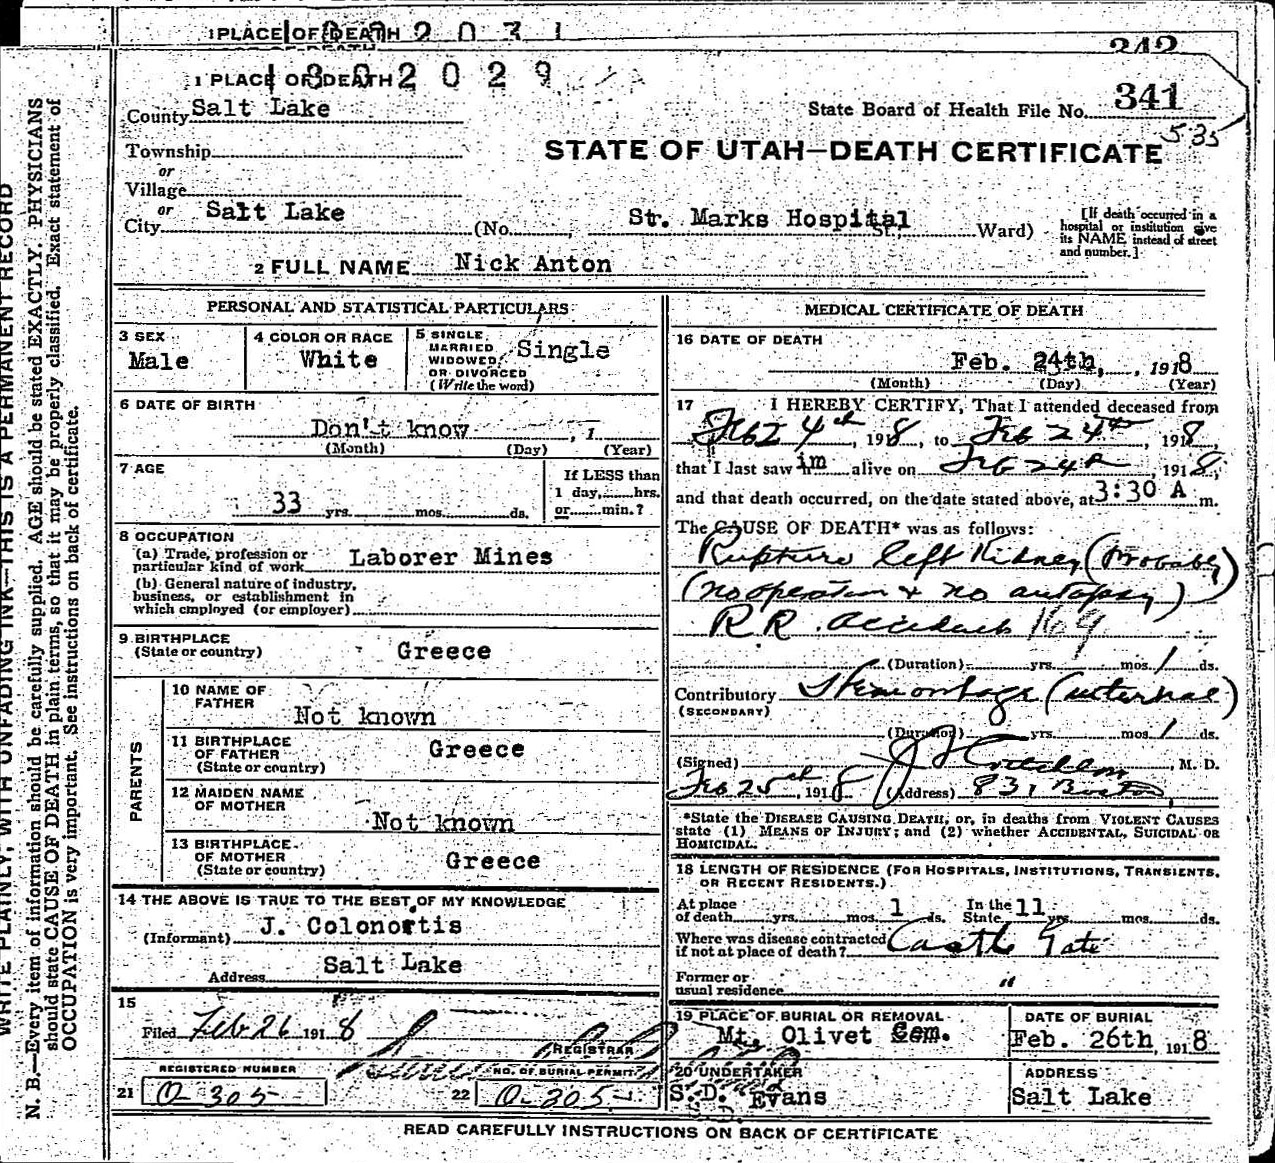 1 PLACE OF DEATH 2 0 3 1
242
1 PLACE OF DEATH 1 8 0 2 0 2 9
County Salt Lake
State Board of Health File No. 341
535
Township
STATE OF UTAH—DEATH CERTIFICATE
or
Village
or
City Salt Lake (No. St. Marks Hospital St., Ward)
[If death occurred in a hospital or institution give its NAME instead of street and number.]
2 FULL NAME Nick Anton
PERSONAL AND STATISTICAL PARTICULARS
3 SEX
Male
4 COLOR OR RACE
White
5 SINGLE, MARRIED, WIDOWED, OR DIVORCED (Write the word)
Single
6 DATE OF BIRTH
Don't know , 1
(Month) (Day) (Year)
7 AGE
33 yrs. mos. ds.
If LESS than
1 day, hrs.
or min.?
8 OCCUPATION
(a) Trade, profession or
particular kind of work Laborer Mines
(b) General nature of industry,
business, or establishment in
which employed (or employer)
9 BIRTHPLACE
(State or country) Greece
PARENTS
10 NAME OF
FATHER
Not known
11 BIRTHPLACE
OF FATHER
(State or country)
Greece
12 MAIDEN NAME
OF MOTHER
Not known
13 BIRTHPLACE
OF MOTHER
(State or country)
Greece
14 THE ABOVE IS TRUE TO THE BEST OF MY KNOWLEDGE
(Informant) J. Colonortis
Address Salt Lake
15
Filed Feb 26 1918
REGISTRAR
REGISTERED NUMBER
21 O-305
NO. OF BURIAL PERMIT
22 O-305
MEDICAL CERTIFICATE OF DEATH
16 DATE OF DEATH
Feb. 24th, , 1918
(Month) (Day) (Year)
17 I HEREBY CERTIFY, That I attended deceased from
Feb 24th, 1918, to Feb 24th, 1918,
that I last saw him alive on Feb 24th, 1918,
and that death occurred, on the date stated above, at 3:30 A m.
The CAUSE OF DEATH* was as follows:
Rupture left Kidney (Probably)
(no operation & no autopsy)
R R. accident 169
(Duration) yrs. mos. 1 ds.
Contributory Hemorrhage (internal)
(SECONDARY)
(Duration) yrs. mos. 1 ds.
(Signed) , M. D.
Feb 25th, 1918 (Address) 831 Boston
*State the DISEASE CAUSING DEATH, or, in deaths from VIOLENT CAUSES
state (1) MEANS OF INJURY; and (2) whether ACCIDENTAL, SUICIDAL OR
HOMICIDAL.
18 LENGTH OF RESIDENCE (FOR HOSPITALS, INSTITUTIONS, TRANSIENTS,
OR RECENT RESIDENTS.)
At place
of death yrs. mos. 1 ds. In the State 11 yrs. mos. ds.
Where was disease contracted
if not at place of death? Castle Gate
Former or
usual residence "
19 PLACE OF BURIAL OR REMOVAL
Mt. Olivet Cem.
DATE OF BURIAL
Feb. 26th, 1918
20 UNDERTAKER
S. D. Evans
ADDRESS
Salt Lake
READ CAREFULLY INSTRUCTIONS ON BACK OF CERTIFICATE
WRITE PLAINLY, WITH UNFADING INK—THIS IS A PERMANENT RECORD
N. B.—Every item of information should be carefully supplied. AGE should be stated EXACTLY. PHYSICIANS
should state CAUSE OF DEATH in plain terms, so that it may be properly classified. Exact statement of
OCCUPATION is very important. See instructions on back of certificate.